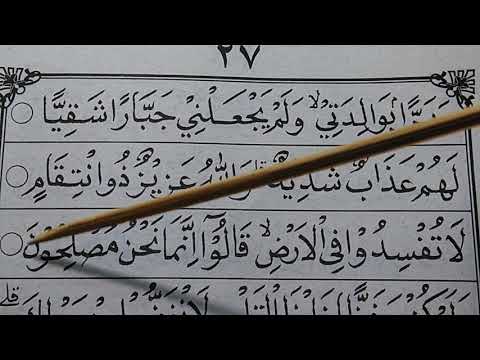 ٢٧
وَبَرًّا بِوَالِدَتِيْۙ وَلَمْ يَجْعَلْنِيْ جَبَّارًا شَقِيًّا
لَهُمْ عَذَابٌ شَدِيْدٌۗ وَاللّٰهُ عَزِيْزٌ ذُوانْتِقَامٍ
لَا تُفْسِدُوْا فِى الْاَرْضِۙ قَالُوْٓا اِنَّمَا نَحْنُ مُصْلِحُوْنَ